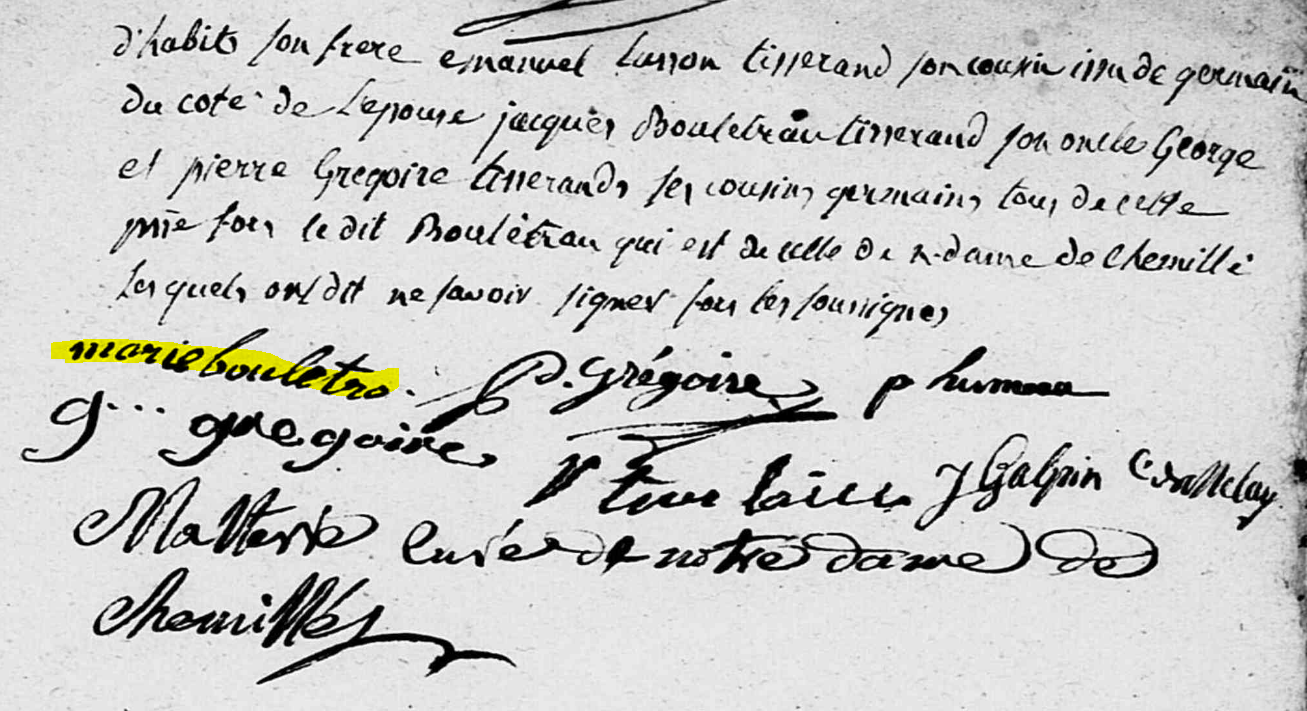 d'habits son frere emanuel Lusson tisserand son cousin issu de germain
du coté de Lepouse jacques Bouletrau tisserand son oncle George
et pierre Gregoire tisserands ses cousins germains tous de cette
psse fors le dit Boulètrau qui est de celle de n-dame de Chemillé
lesquels ont dit ne savoir signer fors les soussignes
marie bouletro. P. Grégoire p
g... gregoire J Galpin
curé de notre dame de
Chemillé